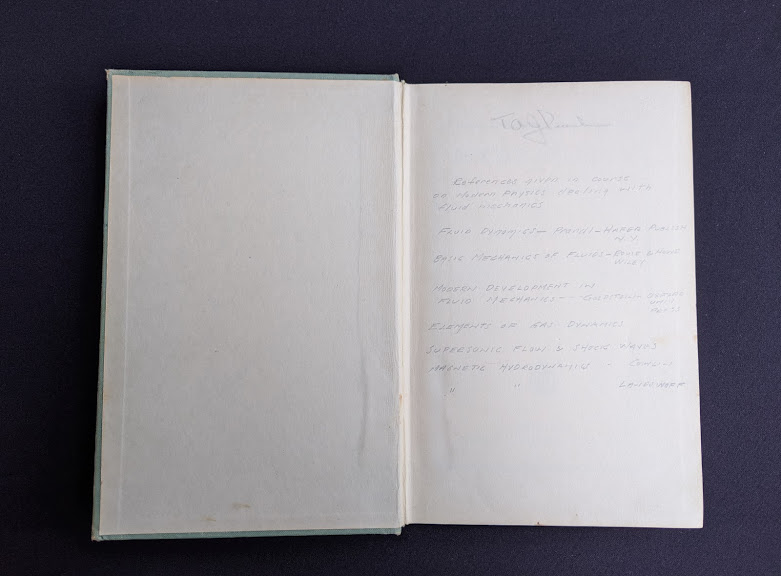 References given in course
on Modern Physics dealing with
Fluid Mechanics
Fluid Dynamics - - Hafner Publish
N.Y.
Basic Mechanics of Fluids - Rouse & Howe
Wiley
Modern Development in
Fluid Mechanics - - Goldstein - Oxford
Univ
Press
Elements of Gas Dynamics
Supersonic Flow & Shock Waves
Magnetic Hydrodynamics - Cowling
" " Landshoff